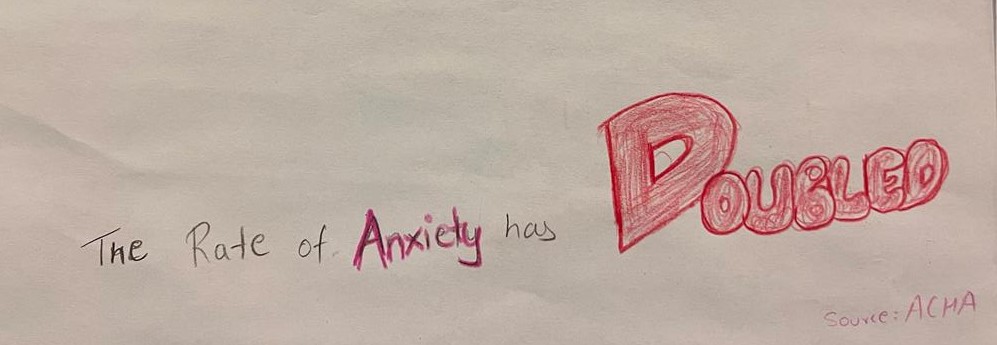 The Rate of Anxiety has DOUBLED
Source: ACHA